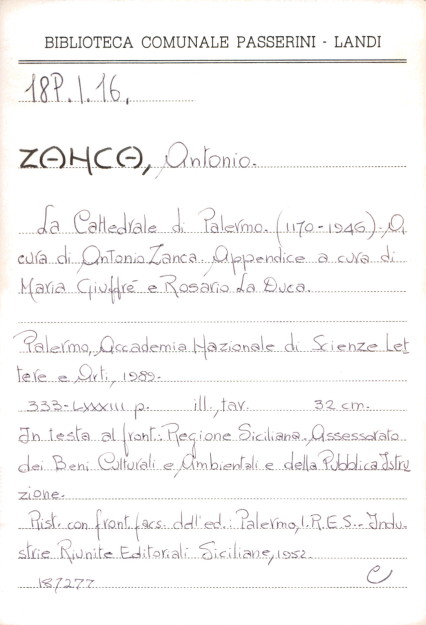 BIBLIOTECA COMUNALE PASSERINI - LANDI
18P. I. 16.
ZANCA, Antonio.
La Cattedrale di Palermo. (1170-1946). A
cura di Antonio Zanca. Appendice a cura di
Maria Giuffré e Rosario La Duca.
Palermo, Accademia Nazionale di Scienze Let
tere e Arti, 1989.
333-LXXXIII p. ill., tav. 32 cm.
In testa al front.: Regione Siciliana. Assessorato
dei Beni Culturali e Ambientali e della Pubblica Istru
zione.
Rist. con front. facs. dell'ed.: Palermo, I.R.E.S.-Indu
strie Riunite Editoriali Siciliane, 1952.
187277 C